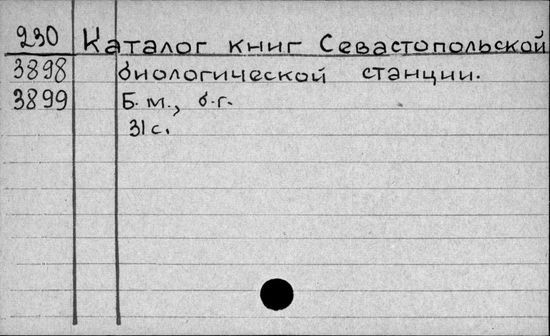 230 Каталог книг Севастопольской
3898 биологической станции.
3899 Б.м., б.г.
31с.